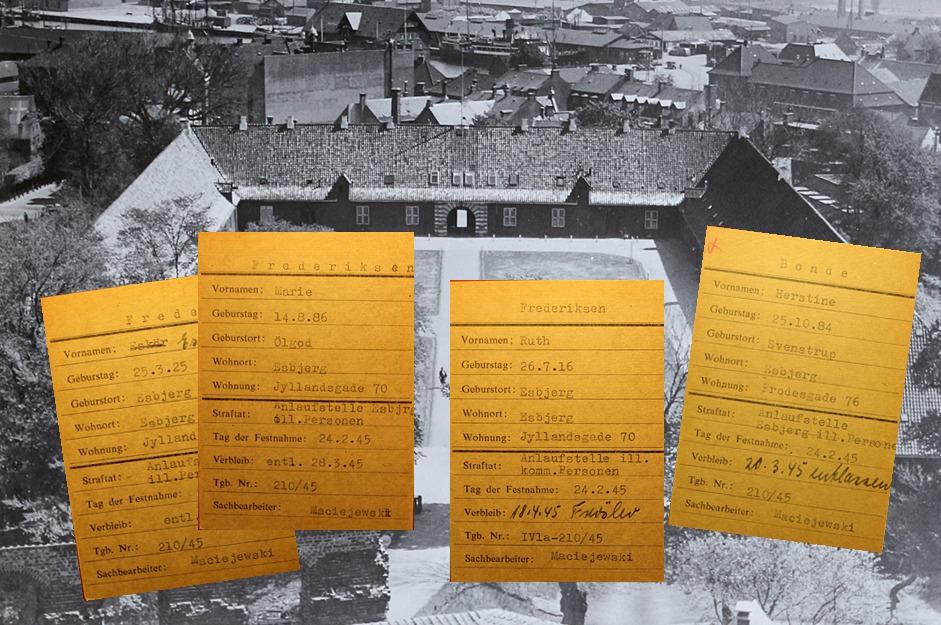 Frede
Vornamen:
Geburstag: 25.3.25
Geburstort: Esbjerg
Wohnort: Esbjerg
Wohnung: Jylland
Straftat: Anlaufs
ill.Per
Tag der Festnahme:
Verbleib: entl.
Tgb. Nr.: 210/45
Sachbearbeiter: Maciejewski
Frederiksen
Vornamen: Marie
Geburstag: 14.8.86
Geburstort: Ölgod
Wohnort: Esbjerg
Wohnung: Jyllandsgade 70
Straftat: Anlaufstelle Esbjrg
ill.Personen
Tag der Festnahme: 24.2.45
Verbleib: entl. 28.3.45
Tgb. Nr.: 210/45
Sachbearbeiter: Maciejewski
Frederiksen
Vornamen: Ruth
Geburstag: 26.7.16
Geburstort: Esbjerg
Wohnort: Esbjerg
Wohnung: Jyllandsgade 70
Straftat: Anlaufstelle ill.
komm.Personen
Tag der Festnahme: 24.2.45
Verbleib: 18.4.45 Frøslev
Tgb. Nr.: IV1a-210/45
Sachbearbeiter: Maciejewski
Bonde
Vornamen: Herstine
Geburstag: 25.10.84
Geburstort: Svenstrup
Wohnort: Esbjerg
Wohnung: Frodesgade 76
Straftat: Anlaufstelle
Esbjerg ill.Persone
Tag der Festnahme: 24.2.45
Verbleib: 20.3.45 entlassen
Tgb. Nr.: 210/45
Sachbearbeiter: Maciejewski